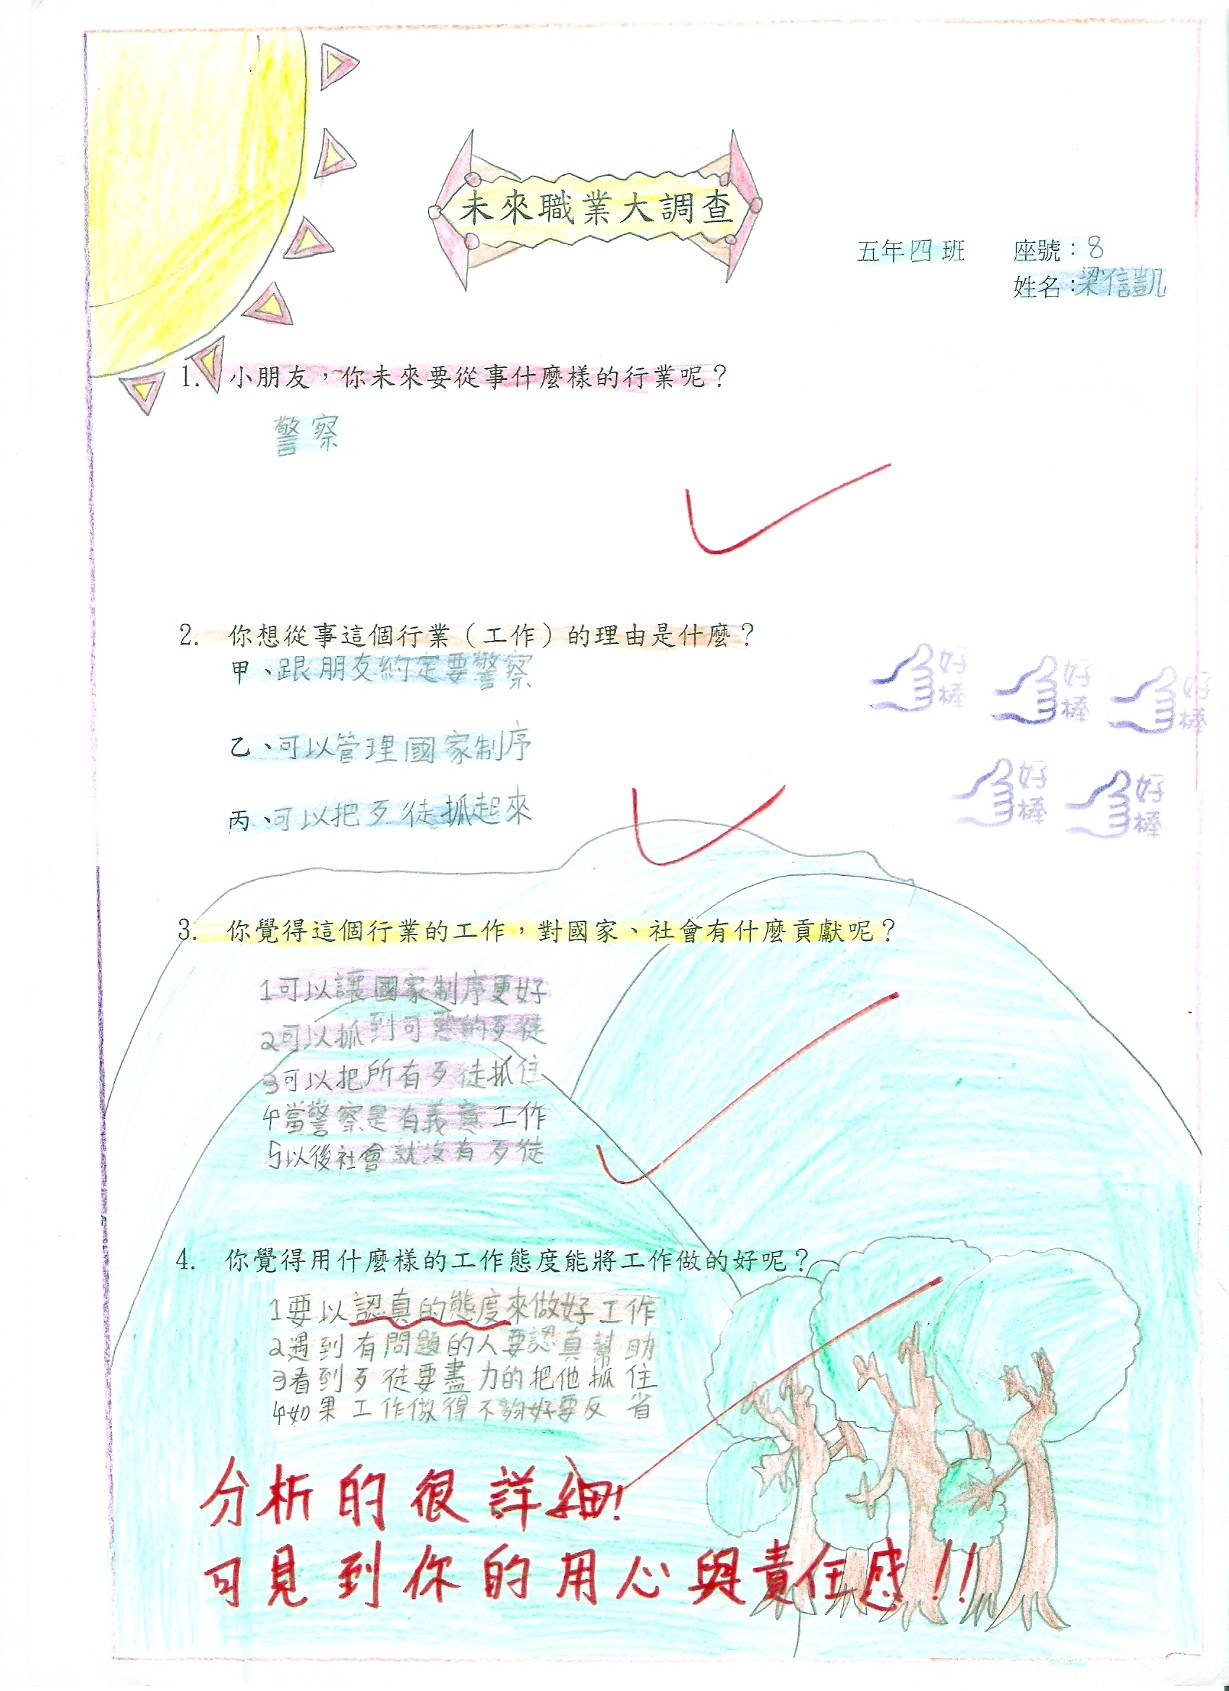 未來職業大調查
五年四班 座號：8
姓名：梁信凱
1. 小朋友，你未來要從事什麼樣的行業呢？
警察
2. 你想從事這個行業（工作）的理由是什麼？
甲、跟朋友約定要警察
乙、可以管理國家制序
丙、可以把歹徒抓起來
好棒
好棒
好棒
好棒
好棒
3. 你覺得這個行業的工作，對國家、社會有什麼貢獻呢？
1可以讓國家制序更好
2可以抓到可惡的歹徒
3可以把所有歹徒抓住
4當警察是有義意工作
5以後社會就沒有歹徒
4. 你覺得用什麼樣的工作態度能將工作做的好呢？
1要以認真的態度來做好工作
2遇到有問題的人要認真幫助
3看到歹徒要盡力的把他抓住
4如果工作做得不夠好要反省
分析的很詳細!
可見到你的用心與責任感!!